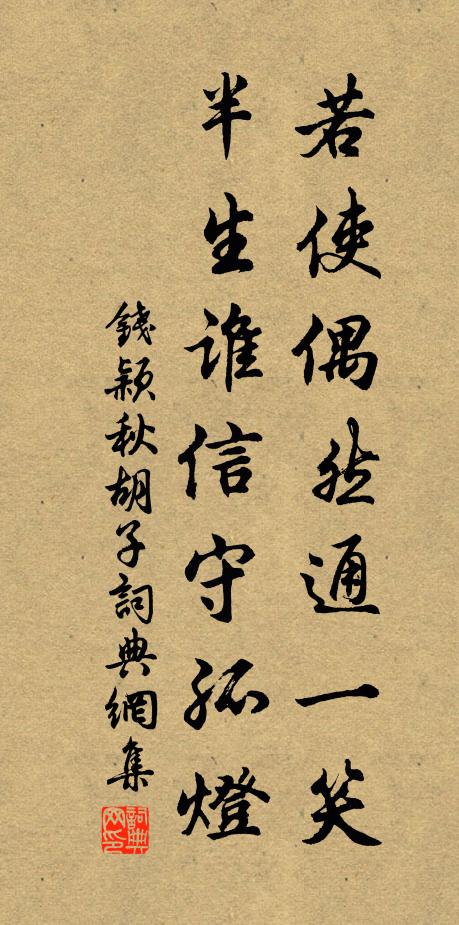 若使偶然通一笑
半生谁信守孤燈
錢穎秋胡子詞典網集
詞典网印